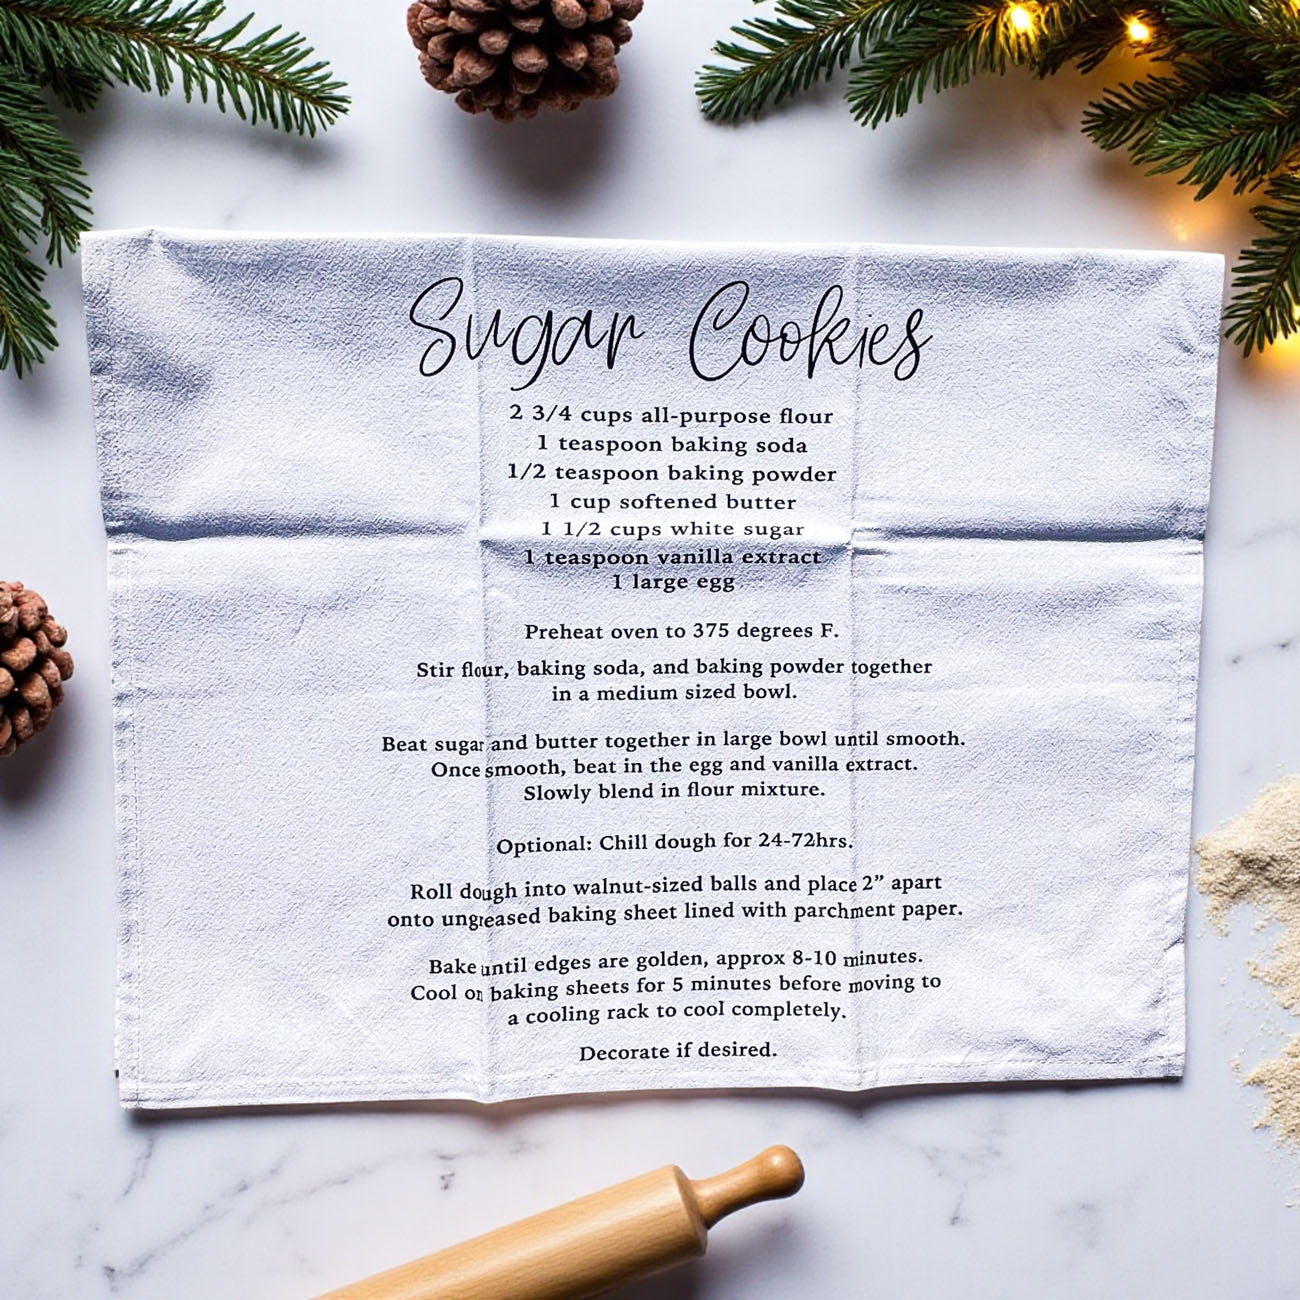 Sugar Cookies
2 3/4 cups all-purpose flour
1 teaspoon baking soda
1/2 teaspoon baking powder
1 cup softened butter
1 1/2 cups white sugar
1 teaspoon vanilla extract
1 large egg
Preheat oven to 375 degrees F.
Stir flour, baking soda, and baking powder together
in a medium sized bowl.
Beat sugar and butter together in large bowl until smooth.
Once smooth, beat in the egg and vanilla extract.
Slowly blend in flour mixture.
Optional: Chill dough for 24-72hrs.
Roll dough into walnut-sized balls and place 2” apart
onto ungreased baking sheet lined with parchment paper.
Bake until edges are golden, approx 8-10 minutes.
Cool on baking sheets for 5 minutes before moving to
a cooling rack to cool completely.
Decorate if desired.